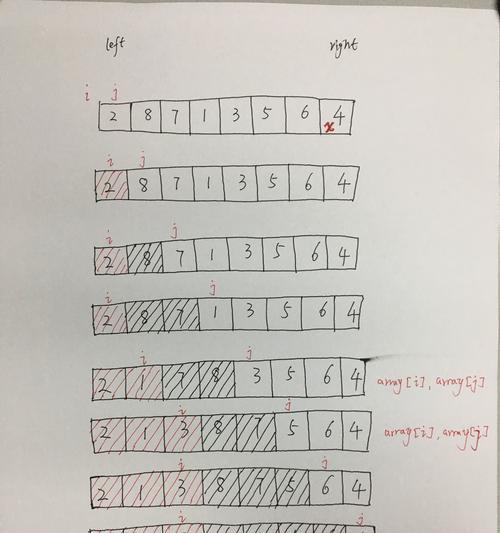 left right
i j
2 8 7 1 3 5 6 4
x
i j
2 8 7 1 3 5 6 4
i j
2 8 7 1 3 5 6 4
i j
2 8 7 1 3 5 6 4
i j
2 1 7 8 3 5 6 4 array[i], array[j]
i j
2 1 3 8 7 5 6 4 array[i], array[j]
i j
2 1 3 8 7 5 6 4
i j